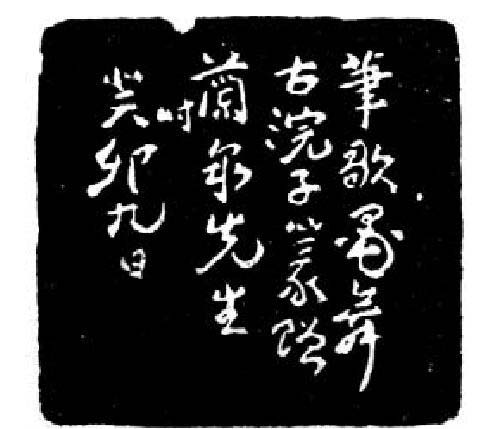 筆歌墨舞
古浣子篆贈
蘭泉先生
时
癸卯九日